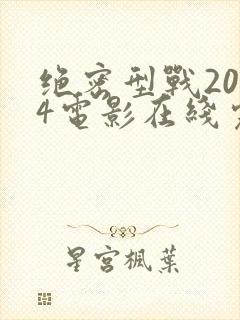 绝密型戰20
4電影在綫
星宮楓葉